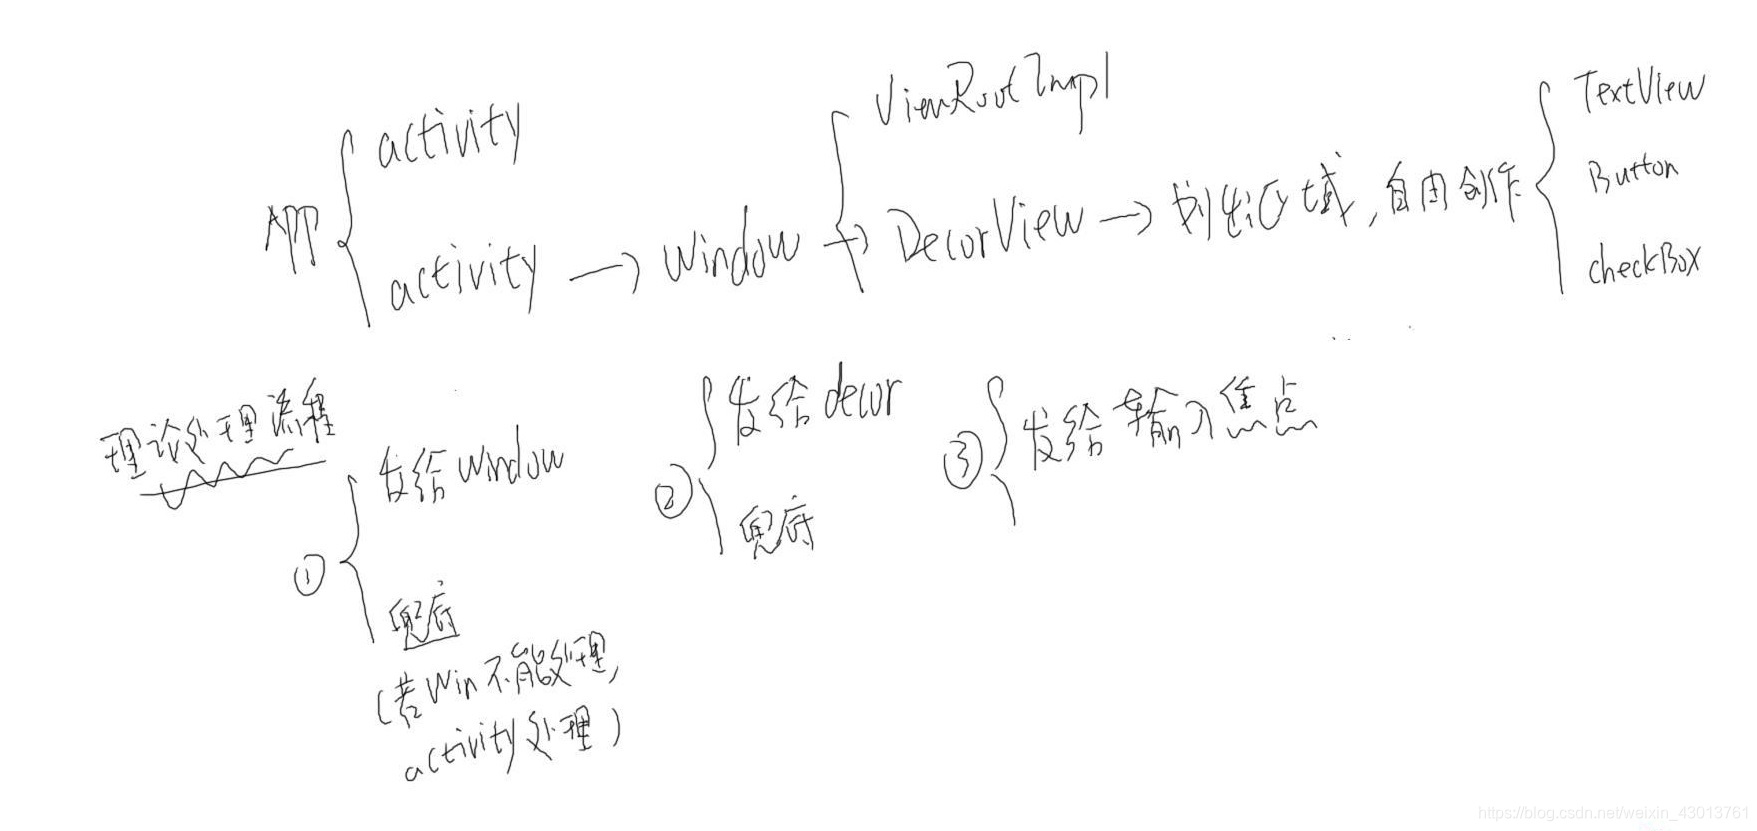 APP
activity
activity → Window → DecorView → 划出区域,自由创作
ViewRootImpl
TextView
Button
checkBox
理论处理流程
①
发给window
兜底
(若Win不能处理,
activity处理)
②
发给decor
兜底
③
发给输入焦点
https://blog.csdn.net/weixin_43013761